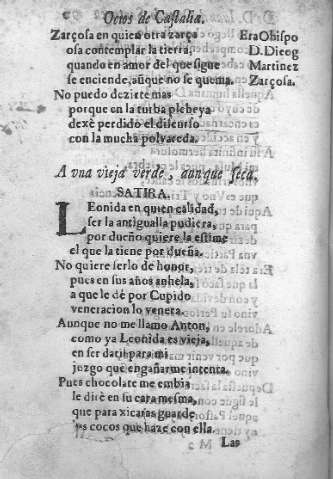 Ocios de Castalia.
Zarçosa en quien otra zarça
osa contemplar la tierra,
quando en amor del que sigue
se enciende, aũque no se quema.
Era Obispo
D. Dieog
Martinez
Zarçosa.
No puedo dezirte mas
porque en la turba plebeya
dexè perdido el discurso
con la mucha polvareda.
A vna vieja verde, aunque seca.
SATIRA.
Leonida en quien calidad,
ser la antigualla pudiera,
por dueño quiere la estime
el que la tiene por dueña.
No quiere serlo de honor,
pues en sus años anhela,
a que le dé por Cupido
veneracion lo venera.
Aunque no me llamo Anton,
como ya Leonida es vieja,
en ser datil para mi
juzgo que engañarme intenta.
Pues chocolate me embia
le dirè en su cara mesma,
que para xicaras guarde
los cocos que haze con ella.
Las